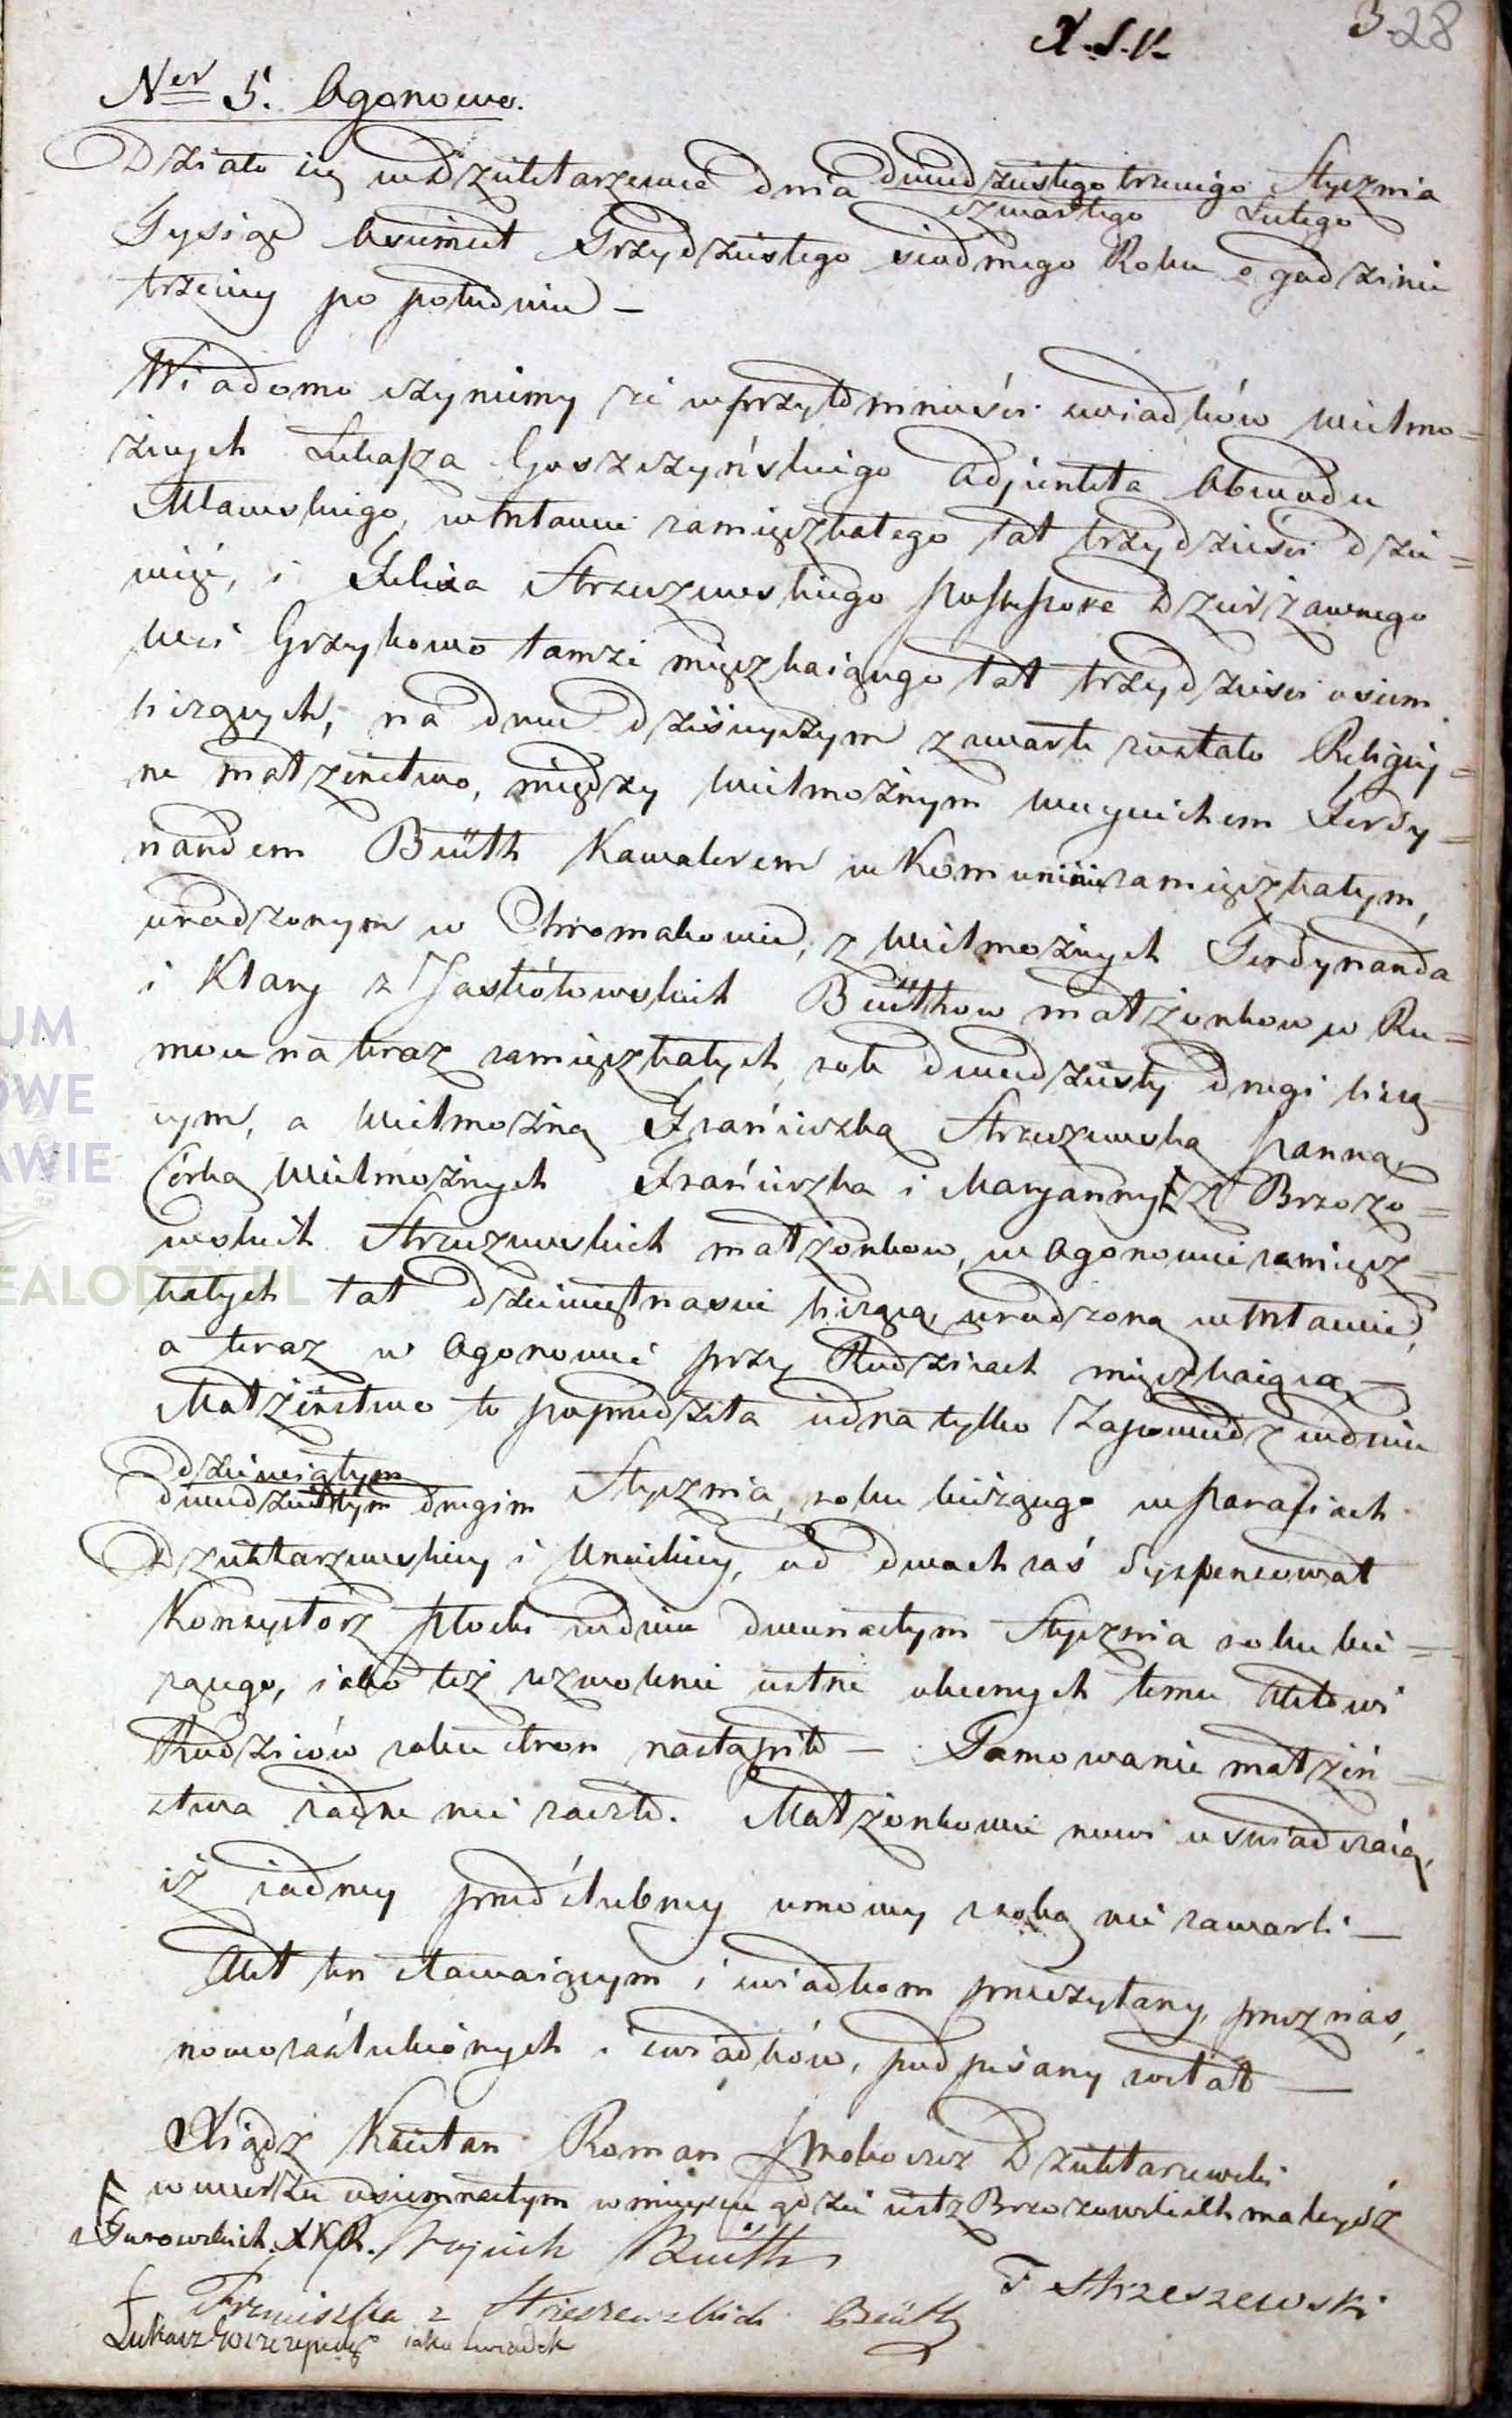 X.S.V.
3 28
Ner 5. Ogonowo.
Działo się w Dziektarzewie dnia dwudziestego trzeciego Stycznia
czwartego Lutego
Tysiąc Osimset Trzydziestego siódmego Roku o godzinie
trzeciey po południu –
Wiadomo czyniemy że w przytomności świadków Wielmo=
żnych Łukasza Goszczyńskiego Adjunkta Obwodu
Mławskiego, w Mławie zamięszkałego lat trzydzieści dzie=
więć, i Felixa Strzeszewskiego possessora Dzierżawnego
Wsi Grzybowo tamże mięszkaiącego lat trzydzieści osiem
liczących, na dniu dzisieyszym zwarte zostało Religiy=
ne małżeństwo, między Wielmożnym Woyciechem Ferdy=
nandem Büth Kawalerem w Komuninie zamięszkałym,
urodzonym w Chromakowie, z Wielmożnych Ferdynanda
i Klary z Jaskółowskich Büthow małżonkow w Ru=
mou na teraz zamięszkałych, rok dwudziesty drugi liczą=
cym, a Wielmożną Franciszką Strzeszewską panną
Córką Wielmożnych Franciszka i Maryanny z Brzozo=
wskich Strzeszewskich małżonkow, w Ogonowie zamięsz=
kałych lat dziewiętnaście liczącą, urodzoną w Mławie,
a teraz w Ogonowie przy Rodzicach mięszkaiącą –
Małżeństwo to poprzedziła iedna tylko Zapowiedź w dniu
dziewiątym
dwudziestym drugim Stycznia, roku bieżącego w parafiach
Dziektarzewskiey i Unieckiey, od dwoch zaś dyspensował
Konsystorz płocki w dniu dwunastym Stycznia roku bie=
żącego, iako też zezwolenie ustne obecnych temu Aktowi
Rodziców z obu stron nastąpiło – Tamowanie małżeń=
stwa żadne nie zaszło. Małżonkowie nowi oświadczaią,
iż żadney przedślubney umowy z sobą nie zawarli –
Akt ten stawaiącym i świadkom przeczytany, przez nas,
nowozaślubionych i świadków, podpisany został –
Xiądz Kaietan Roman Proboszcz Dziektarzewski
w wierszu osiemnastym w mieyscu gdzie iest z Brzozowskich ma być z
z Gurowskich. X K R. Woyciech Büth
F Strzeszewski
Franciszka z Strzeszewskich Büth
Łukasz Goszczyński iako świadek